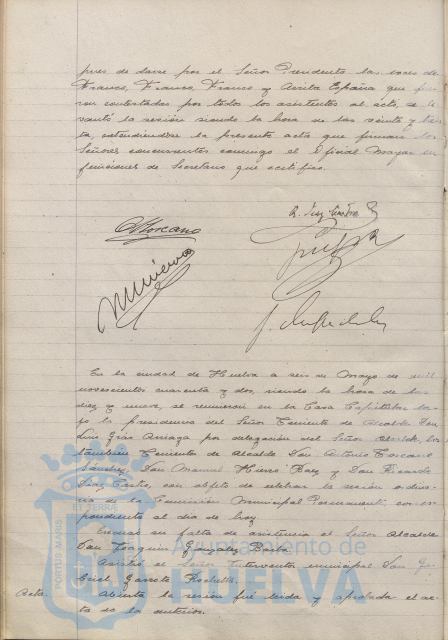 pues de darse por el Señor Presidente las voces de
Franco, Franco, Franco y Arriba España que fue
ron contestadas por todos los asistentes al acto, se le
vantó la sesión siendo la hora de las veinte y trein
ta, extendiéndose la presente acta que firman los
Señores concurrentes conmigo el Oficial Mayor en
funciones de Secretario que certifico.
En la ciudad de Huelva a seis de Mayo de mil
novecientos cuarenta y dos, siendo la hora de las
diez y nueve, se reunieron en la Casa Capitular ba
jo la presidencia del Señor Teniente de Alcalde Don
Luis Arriaga por delegación del Señor Alcalde, los
también Tenientes de Alcalde Don Antonio Toscano
Sánchez, Don Manuel Hierro Báez y Don Ricardo
Díaz Castro, con objeto de celebrar la sesión ordina
ria de la Comisión Municipal Permanente, corres
pondiente al día de hoy.
Excusó su falta de asistencia el Señor Alcalde
Don Joaquín González Barba.
Asistió el Señor Interventor municipal Don Ga
briel Garrote
Acta. Abierta la sesión fué leída y aprobada el ac
ta de la anterior.
PORTUS MARIS ET TERRAE
Ayuntamiento de
HUELVA